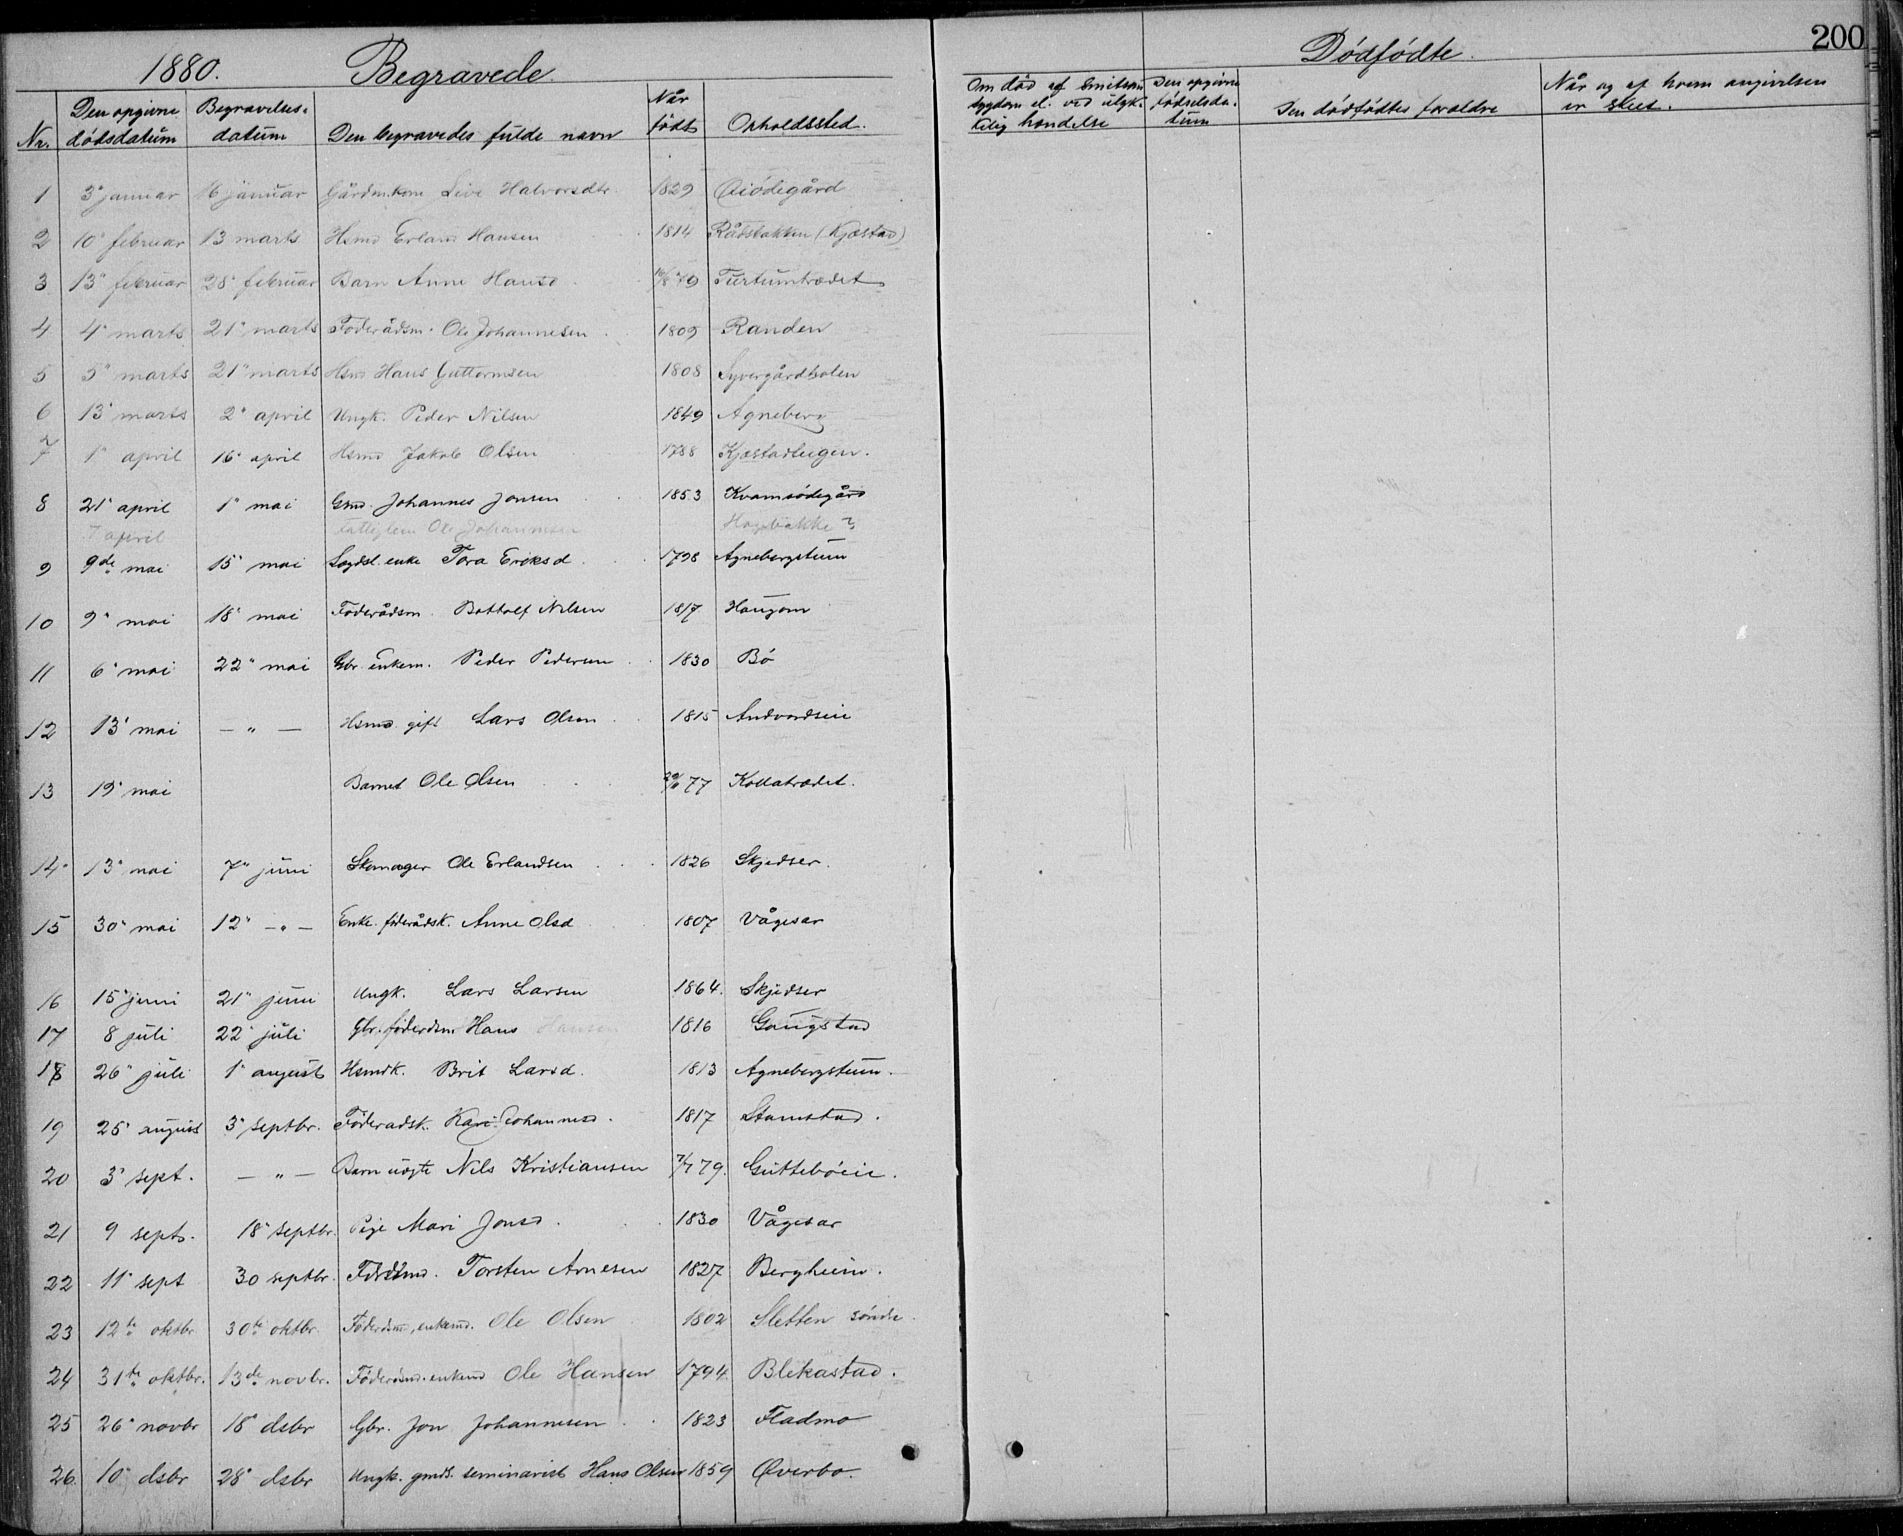 200
1880. Begravede.
Nr. Den opgivne dødsdatum Begravelses-datum Den begravedes fulde navn Når født Opholdssted.
1 3" januar 16 januar Gårdm.kone Live Halvorsdtr. 1829 Øiödegård
2 10" februar 13 marts Hsmd Erland Hansen 1814 Rådstakken (Kjæstad)
3 13" februar 28" februar Barn Anne Hansd 79 Turtumtrædet
4 4" marts 21" marts Föderådsm. Ole Johannesen 1809 Randen
5 5" marts 21" marts Hsmd Hans Guttormsen 1808 Syvergårdbolen
6 13" marts 2" april Ungk. Peder Nilsen 1849 Agneberg
7 1" april 16" april Hsmd Jakob Olsen 1788 Kjæstadeigen.
8 21" april 1" mai Gmd. Johannes Jonsen 1853 Kvamsödegård
7 april Fattiglem Ole Johannesen Hagebakke ?
9 9de mai 15" mai Lægdsl. enke Tora Eriksd 1798 Agnebergstuen
10 9" mai 18" mai Føderådsm. Botholf Nilsen 1817 Haugom
11 6" mai 22" mai Gbr. enkem. Peder Pedersen 1830 Bö
12 13" mai — " — Hsmd. gift Lars Olsen 1815 Andvordseie
13 19" mai Barnet Ole Olsen 77 Kollatrædet.
14" 13" mai 7" juni Skomager Ole Erlandsen 1826 Skjedser.
15 30" mai 12" — " — Enke. føderådsk. Anne Olsd 1807 Vågesar
16 15" juni 21" juni Ungk. Lars Larsen 1864. Skjedser
17 8 juli 22" juli Gbr. föderdsm. Hans Hansen 1816 Gaugstad
18 26" juli 1" august Hsmdk. Brit Larsd. 1813 Agnebergstuen.
19 25" august 3" septbr. Föderadsk. Kari Johannesd. 1817 Stamstad.
20 3" sept. — " — Barn uægte Nils Kristiansen 7/7 79. Guttebøeie.
21 9 sept. 18" septbr. Pige Mari Jonsd. 1830 Vågesar
22 11" sept 30 septbr. Torsten Arnesen 1827 Bergheim.
23 12te oktbr. 30te oktbr. Föderdsmd, enkemd. Ole Olsen 1802 Sletten søndre.
24 31te oktbr. 13de novbr. Föderdsmd. enkemd Ole Hansen 1794. Blekastad.
25 26" novbr 18" dsbr Gbr. Jon Johannesen 1823 Fladmo
26. 10" dsbr 28" dsbr Ungk. gmds. seminarist Hans Olsen 1859 Øverbo.
Dødfødte.
Om død af smitsom sygdom el. ved ulyk-kelig hændelse Den opgivne fødselsda-tum Den dödfødtes forældre Når og af hvem angivelsen er skeet.